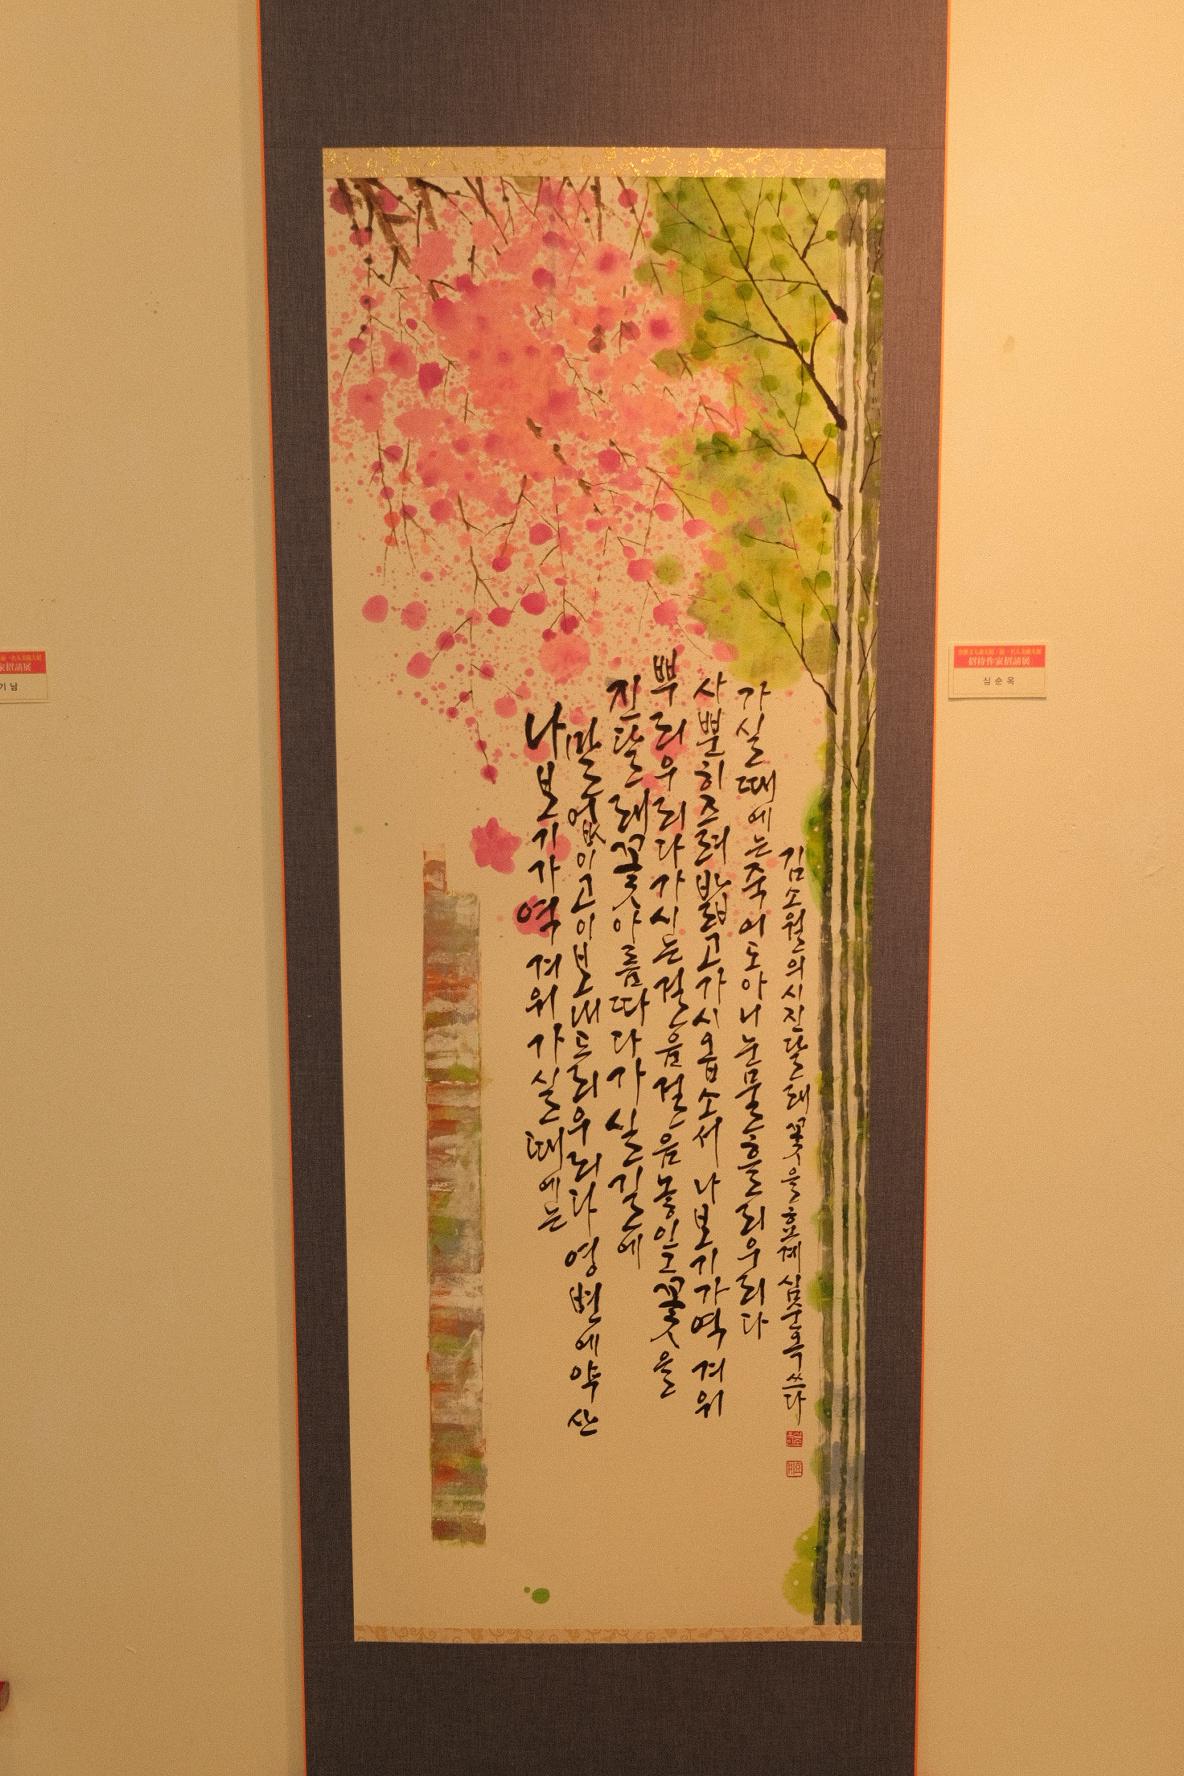 나 보기가 역겨워 가실 때에는
말 없이 고이 보내 드리우리다 영변에 약산
진달래꽃 아름따다 가실 길에
뿌리우리다 가시는 걸음 걸음 놓인 그 꽃을
사뿐히 즈려 밟고 가시옵소서 나 보기가 역겨워
가실 때에는 죽어도 아니 눈물 흘리우리다
김소월의 시 진달래꽃을 효계 심순옥 쓰다
招待作家招請展
심순옥
기남